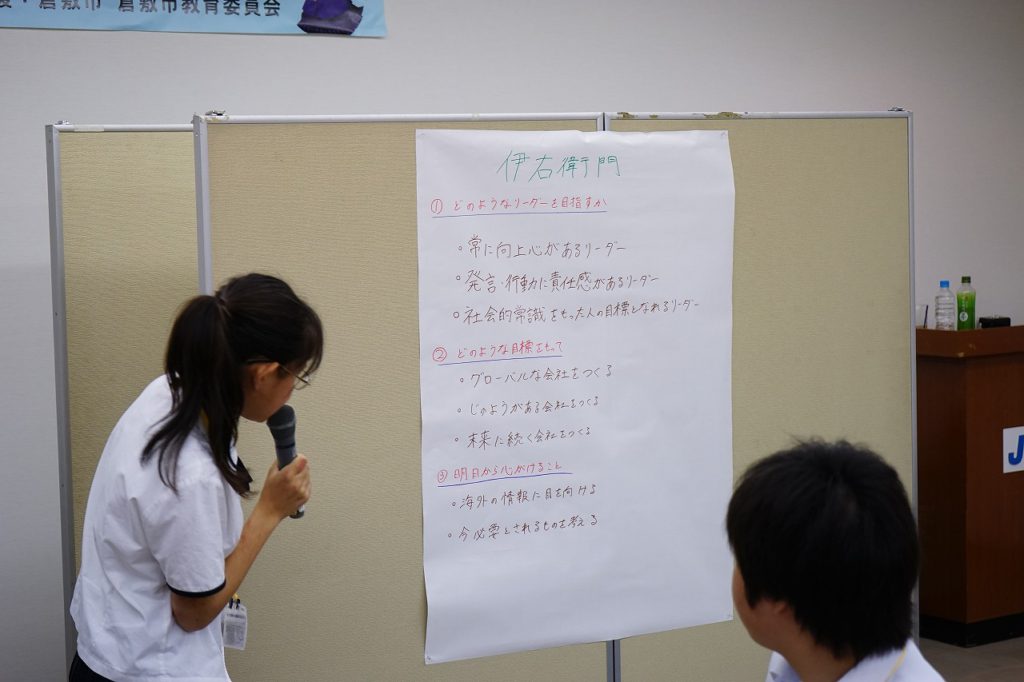 倉敷市 倉敷市教育委員会
伊右衛門
① どのようなリーダーを目指すか
。常に向上心があるリーダー
。発言・行動に責任感があるリーダー
。社会的常識をもった人の目標となれるリーダー
② どのような目標をもって
。グローバルな会社をつくる
。じゅようがある会社をつくる
。未来に続く会社をつくる
③ 明日から心がけること
。海外の情報に目を向ける
。今必要とされるものを考える
J